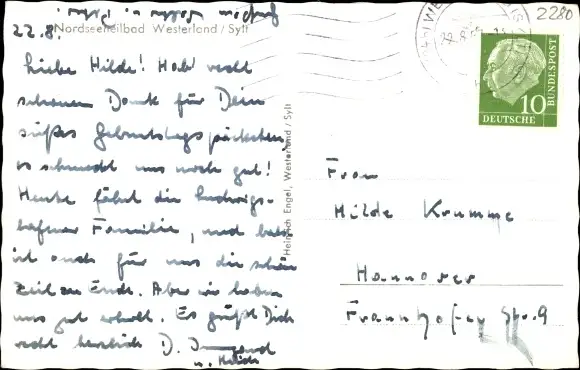 22.8.
Nordseeheilbad Westerland / Sylt
Liebe Hilde! Hab' recht
schönen Dank für Dein
süßes Geburtstagspäckchen,
es schmeckt uns noch gut!
Heute fährt die Ludwigs-
hafener Familie, und bald
ist auch für uns die schöne
Zeit zu Ende. Aber wir haben
uns gut erholt. Es grüßt Dich
recht herzlich D. Irmgard
u. Heidi
Heinrich Engel, Westerland / Sylt
2280
10
DEUTSCHE
BUNDESPOST
Frau
Hilde Krumme
Hannover
Fraunhofer Str. 9